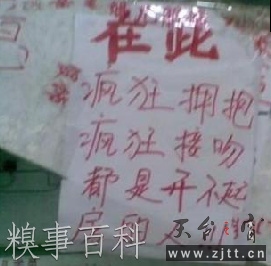 在此
疯狂拥抱
疯狂接吻
都是开不起
房的
糗事百科
天台
www.zjtt.cn